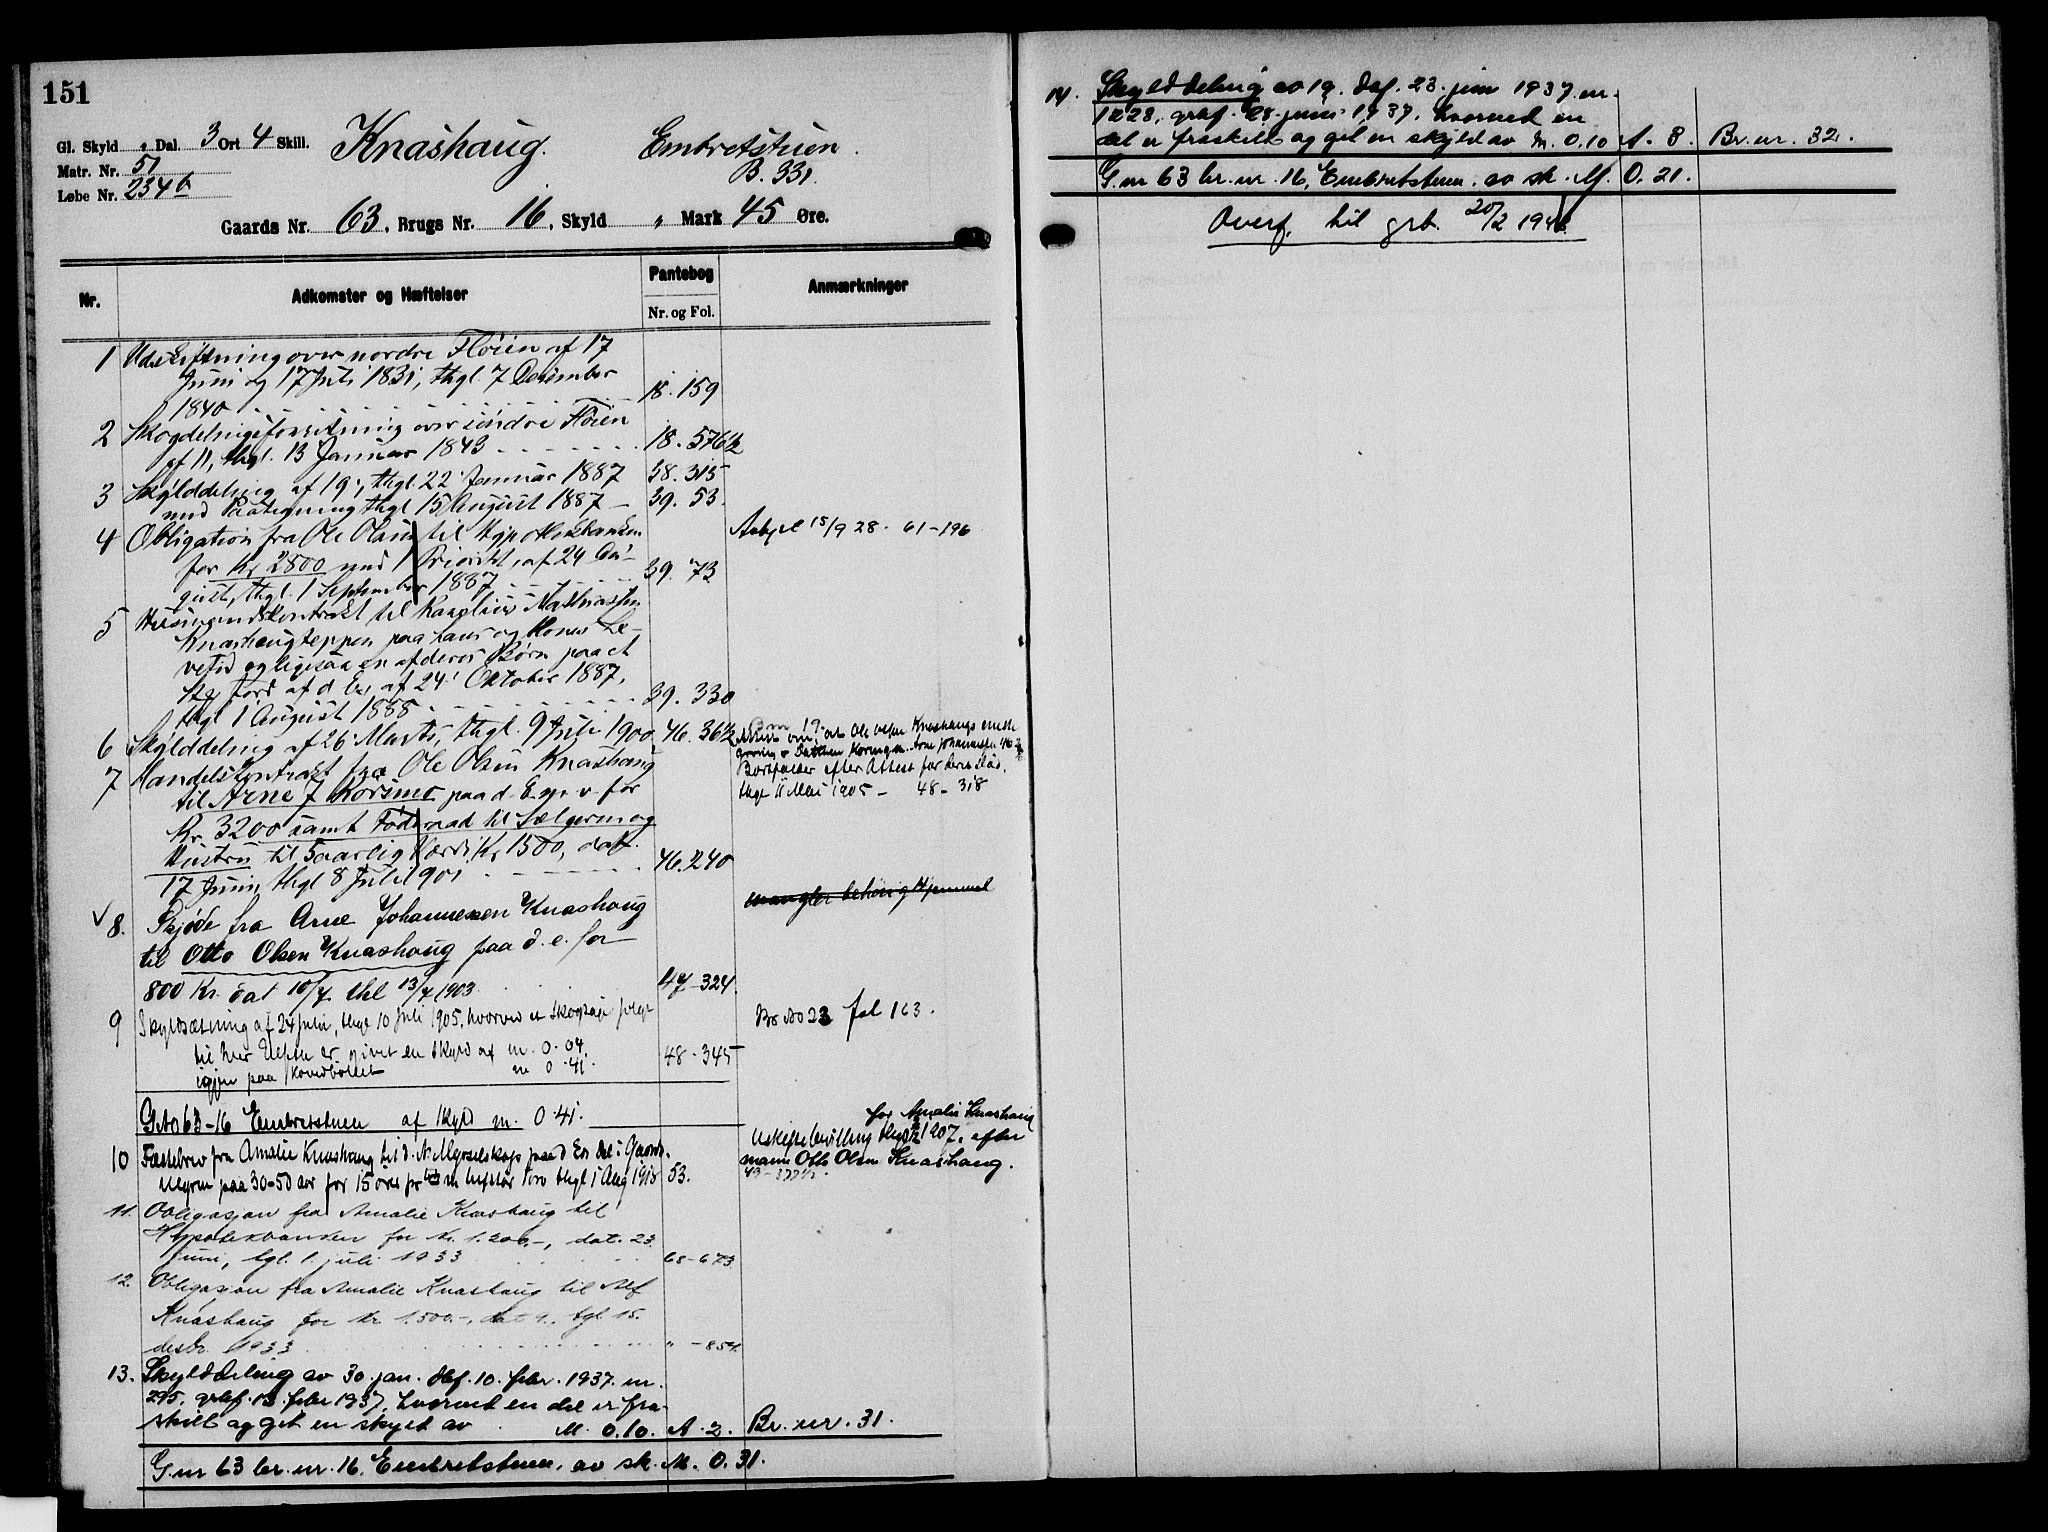 151
Gl. Skyld „ Dal. 3 Ort 4 Skill. Knashaug. Embretstuen.
Matr. Nr. 51 B. 331.
Løbe Nr. 234 b
Gaards Nr. 63, Brugs Nr. 16, Skyld „ Mark 45 Øre.
Nr. Adkomster og Hæftelser Pantebog Nr. og Fol. Anmærkninger
1 Udskiftning over nordre Fløien af 17
Juni og 17 Juli 1831, thgl. 7 December
1840 18. 159
2 Skogdelingsforretning over søndre Fløien
af 11, thgl. 13 Januar 1843 18. 576½
3 Skylddeling af 19, thgl. 22 Januar 1887 38. 315
med Paategning thgl 15 August 1887 39. 53.
4 Obligation fra Ole Olsen til Hypothekbanken
for Kr 2800 med 1 Prioritet, af 24 Au-
gust, thgl. 1 September 1887 39. 73
Avlyst 15/9 28. 61-196
5 Husmandskontrakt til Mathiassen
Knashaugteppen paa hans og Kones Le-
vetid og ligesaa en af deres Børn paa et
St. Jord af d. E., af 24 Oktober 1887,
thgl 1 August 1888 39. 330
6 Skylddeling af 26 Marts, thgl. 9 Juli 1900. 46. 36½
7 Handelskontrakt fra Ole Olsen Knashaug
til Arne J Korsmo paa d. E. for
Kr. 3200 samt Føderaad til Sælgeren og
Hustru til 5aarlig Værdi Kr 1500, dat.
17 Juni, thgl 8 Juli 1901 46. 240
at Ole Olsen Knashaugs eneste
arving Johannessen
Bortfalder efter Attest for
thgl 11 Mai 1905 - 48 - 318
mangler behørig Hjemmel
✓ 8. Skjøde fra Arne Johannessen Knashaug
til Otto Olsen Knashaug paa d. e. for
800 Kr. dat 10/7 thl 13/7 1903. 47-324.
9 Skyldsætning af 24 Juni, thgl 10 Juli 1905, hvorved et Skogteig
til er givet en Skyld af m. 0.04.
igjen paa Hovedbøllet m 0.41. 48-345
Br No 23 fol 163.
G No 63-16 Embretstuen af Skyld m. 0.41.
10 Fæstebrev fra Amalie Knashaug til d. N. Myrselskap paa d. En. Del i Gaards.
Myren paa 30-50 aar for 15 øre pr thgl 1 Aug 1918 53.
for Amalie Knashaug
Uskiftebevilling 1907, efter
mann Otto Olsen Knashaug.
49-377½.
11. Obligasjon fra Amalie Knashaug til
Hypotekbanken for kr. 1.200.-, dat. 23.
juni, tgl. 1. juli 1933 68-673
12. Obligasjon fra Amalie Knashaug til Alf
Knashaug for kr 1.500.-, dat 9., tgl 15.
desbr. 1933 „ -854.
13. Skylddeling av 30. jan. dbf. 10. febr. 1937. nr.
295, grbf. 12. febr 1937, hvorved en del er fra-
skilt og git en skyld av M. 0.10. A. 2. Br. nr. 31.
G. nr 63 br. nr. 16, Embretstuen, av sk. M. 0.31.
14. Skylddeling av 19. dbf. 23. juni 1937. nr.
1228, grbf. 28. juni 1937, hvorved en
del er fraskilt og git en skyld av M. 0.10 A. 8. Br. nr. 32.
G. nr 63 br. nr. 16, Embretstuen. av sk. M. 0.21.
Overf. til grb. 20/2 194